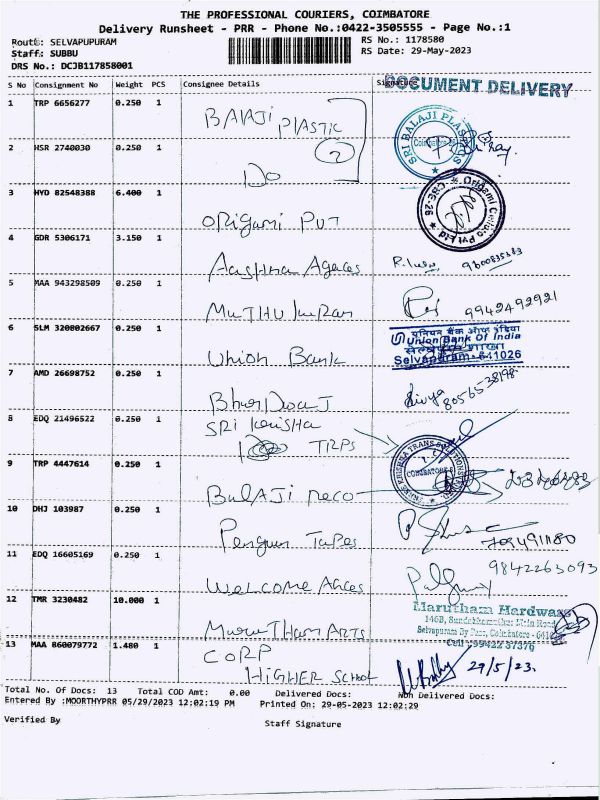 THE PROFESSIONAL COURIERS, COIMBATORE
Delivery Runsheet - PRR - Phone No.:0422-3505555 - Page No.:1
Route: SELVAPUPURAM
RS No.: 1178580
Staff: SUBBU
RS Date: 29-May-2023
DRS No.: DCJB117858001
S No Consignment No Weight PCS Consignee Details Signature
DOCUMENT DELIVERY
1 TRP 6656277 0.250 1 BALAJI PLASTIC
SRI BALAJI PLASTICS
2 HSR 2740030 0.250 1 Do
2
3 HYD 82548388 6.400 1 Origami PVT
Origami Cellulo Pvt Ltd
CBE-26
4 GDR 5306171 3.150 1
9600835383
5 MAA 943298509 0.250 1 MUTHU kuran
9942492921
6 SLM 320002667 0.250 1 Union Bank
यूनियन बैंक ऑफ इंडिया
Union Bank Of India
Selvapuram - 641026
7 AMD 26698752 0.250 1
divya
8056538198
8 EDQ 21496522 0.250 1 SRI
TRPS
COIMBATORE
9 TRP 4447614 0.250 1 BalAJI
10 DHJ 103987 0.250 1 Penguin Tapes
11 EDQ 16605169 0.250 1 WELCOME
9842263093
12 TMR 3230482 10.000 1
Marutham Hardware
Selvapuram By Pass, Coimbatore
Cell : 99422 37370
13 MAA 860079772 1.480 1 CORP
HIGHER School
29/5/23.
Total No. Of Docs: 13 Total COD Amt: 0.00 Delivered Docs: Non Delivered Docs:
Entered By :MOORTHYPRR 05/29/2023 12:02:19 PM Printed On: 29-05-2023 12:02:29
Verified By
Staff Signature